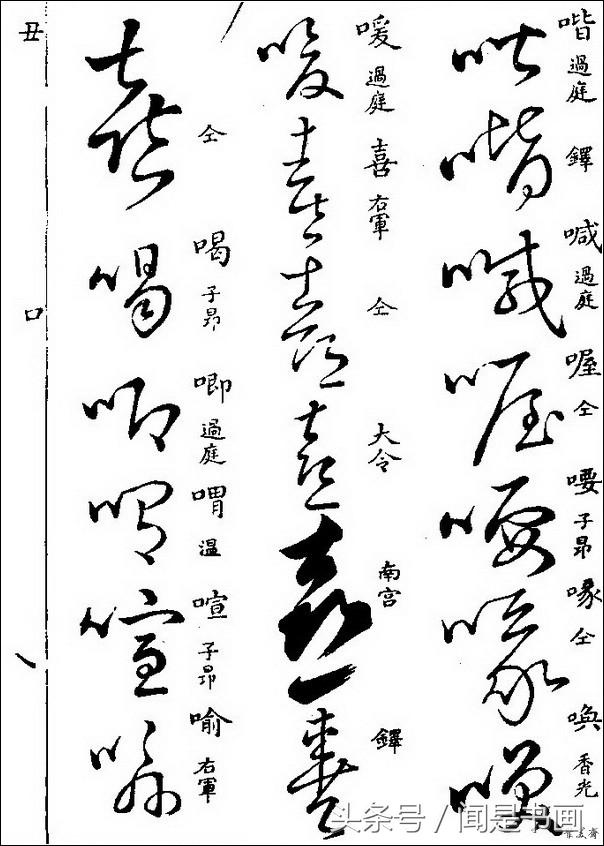 喈 過庭
鐸
喊 過庭
喔 仝
喓 子昂
喙 仝
喚 香光
喛 過庭
喜 右軍
仝
大令
南宮
鐸
仝
喝 子昂
喞 過庭
喟 溫
喧 子昂
喻 右軍
丑
口
头条号 / 闻是书画